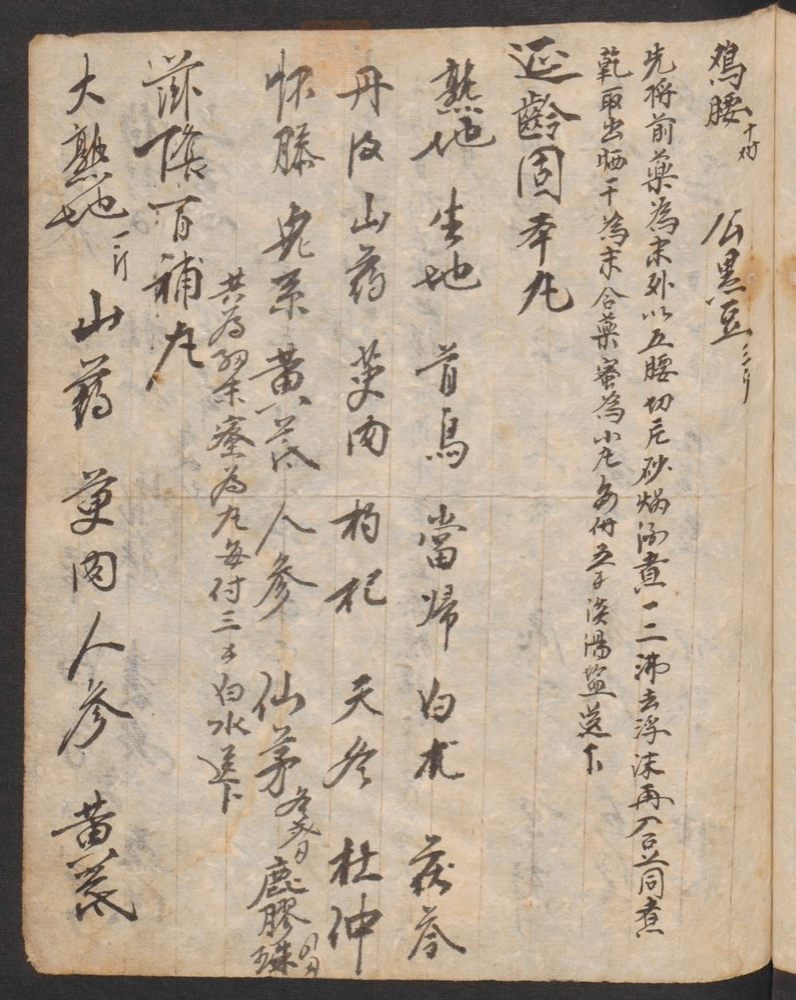 鸡腰十对 公黑豆三斤
先将前藥為末外以五腰切片砂焗湯煮一二沸去浮沫再入召前同煮
乾取出晒干為末合藥蜜為小丸每付五子淡湯盐送下
延齡固本丸
熟地 生地 首烏 當归 白朮 茯苓
丹皮 山葯 萸肉 枸杞 天冬 杜仲
怀膝 兎糸 黄芪 人参 仙茅 鹿膠珠
共為细末蜜為丸每付三子白水送下
滋陰百補丸
大熟地一斤 山葯 萸肉 人参 黄芪